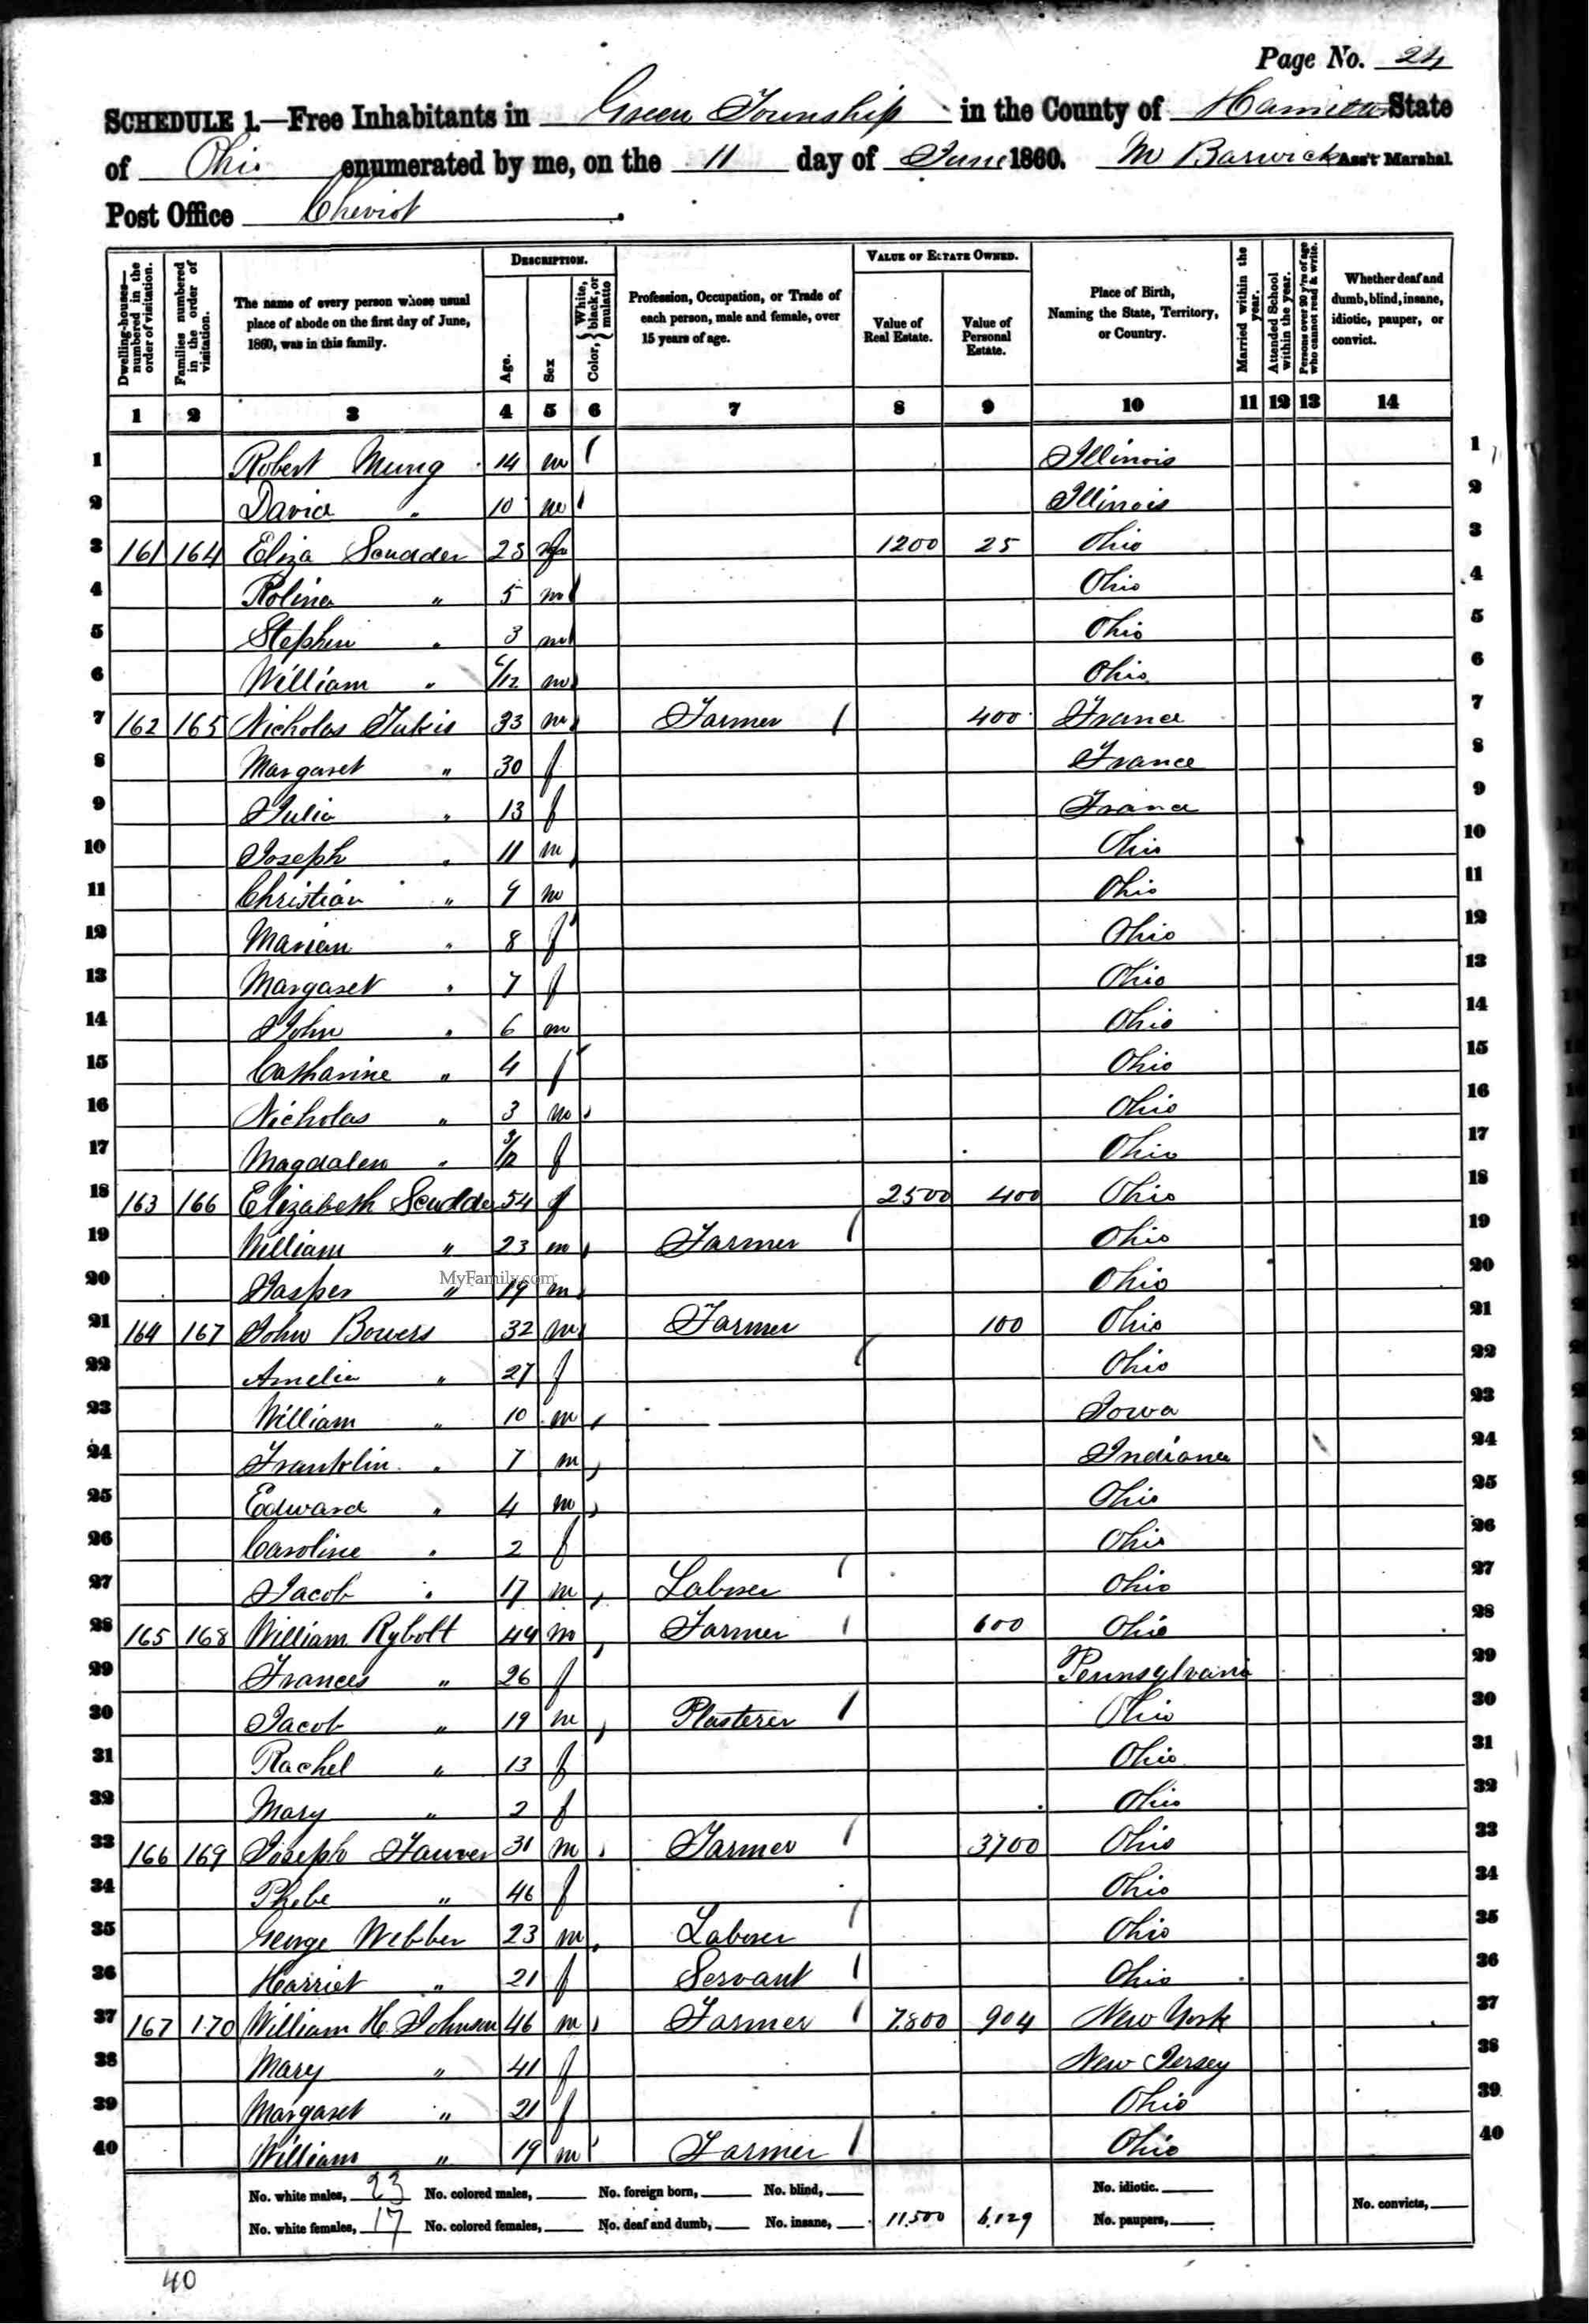 Page No. 24
SCHEDULE 1.—Free Inhabitants in Green Township in the County of Hamilton State
of Ohio enumerated by me, on the 11 day of June 1860. M Barwick Ass't Marshal
Post Office Cheviot.
Dwelling-houses—numbered in the order of visitation. Families numbered in the order of visitation. The name of every person whose usual place of abode on the first day of June, 1860, was in this family. DESCRIPTION. Age. Sex Color, { White, black, or mulatto Profession, Occupation, or Trade of each person, male and female, over 15 years of age. VALUE OF ESTATE OWNED. Value of Real Estate. Value of Personal Estate. Place of Birth, Naming the State, Territory, or Country. Married within the year. Attended School within the year. Persons over 20 y'rs of age who cannot read & write. Whether deaf and dumb, blind, insane, idiotic, pauper, or convict.
1 2 3 4 5 6 7 8 9 10 11 12 13 14
1 Robert 14 m Illinois 1
2 David " 10 m Illinois 2
3 161 164 Eliza Scudder 28 f 1200 25 Ohio 3
4 " 5 m Ohio 4
5 Stephen " 3 m Ohio 5
6 William " /12 m Ohio 6
7 162 165 Nicholas 33 m Farmer 400 France 7
8 Margaret " 30 f France 8
9 Julia " 13 f France 9
10 Joseph " 11 m Ohio 10
11 Christian " 9 m Ohio 11
12 Marian " 8 f Ohio 12
13 Margaret " 7 f Ohio 13
14 John " 6 m Ohio 14
15 Catharine " 4 f Ohio 15
16 Nicholas " 3 m Ohio 16
17 Magdalen " 3/12 f Ohio 17
18 163 166 Elizabeth Scudder 54 f 2500 400 Ohio 18
19 William " 23 m Farmer Ohio 19
20 Jasper " 19 m Ohio 20
MyFamily.com
21 164 167 John Bowers 32 m Farmer 100 Ohio 21
22 Amelia " 27 f Ohio 22
23 William " 10 m Iowa 23
24 Franklin " 7 m Indiana 24
25 Edward " 4 m Ohio 25
26 Caroline " 2 f Ohio 26
27 Jacob " 17 m Laborer Ohio 27
28 165 168 William Rybolt 49 m Farmer 600 Ohio 28
29 Frances " 26 f Pennsylvania 29
30 Jacob " 19 m Plasterer Ohio 30
31 Rachel " 13 f Ohio 31
32 Mary " 2 f Ohio 32
33 166 169 Joseph 31 m Farmer 3700 Ohio 33
34 Phebe " 46 f Ohio 34
35 George Webber 23 m Laborer Ohio 35
36 Harriet " 21 f Servant Ohio 36
37 167 170 William H. Johnson 46 m Farmer 7.800 904 New York 37
38 Mary " 41 f New Jersey 38
39 Margaret " 21 f Ohio 39
40 William " 19 m Farmer Ohio 40
No. white males, 23 No. colored males, No. foreign born, No. blind, No. idiotic.
No. white females, 17 No. colored females, No. deaf and dumb, No. insane, 11.500 6,129 No. paupers, No. convicts,
40